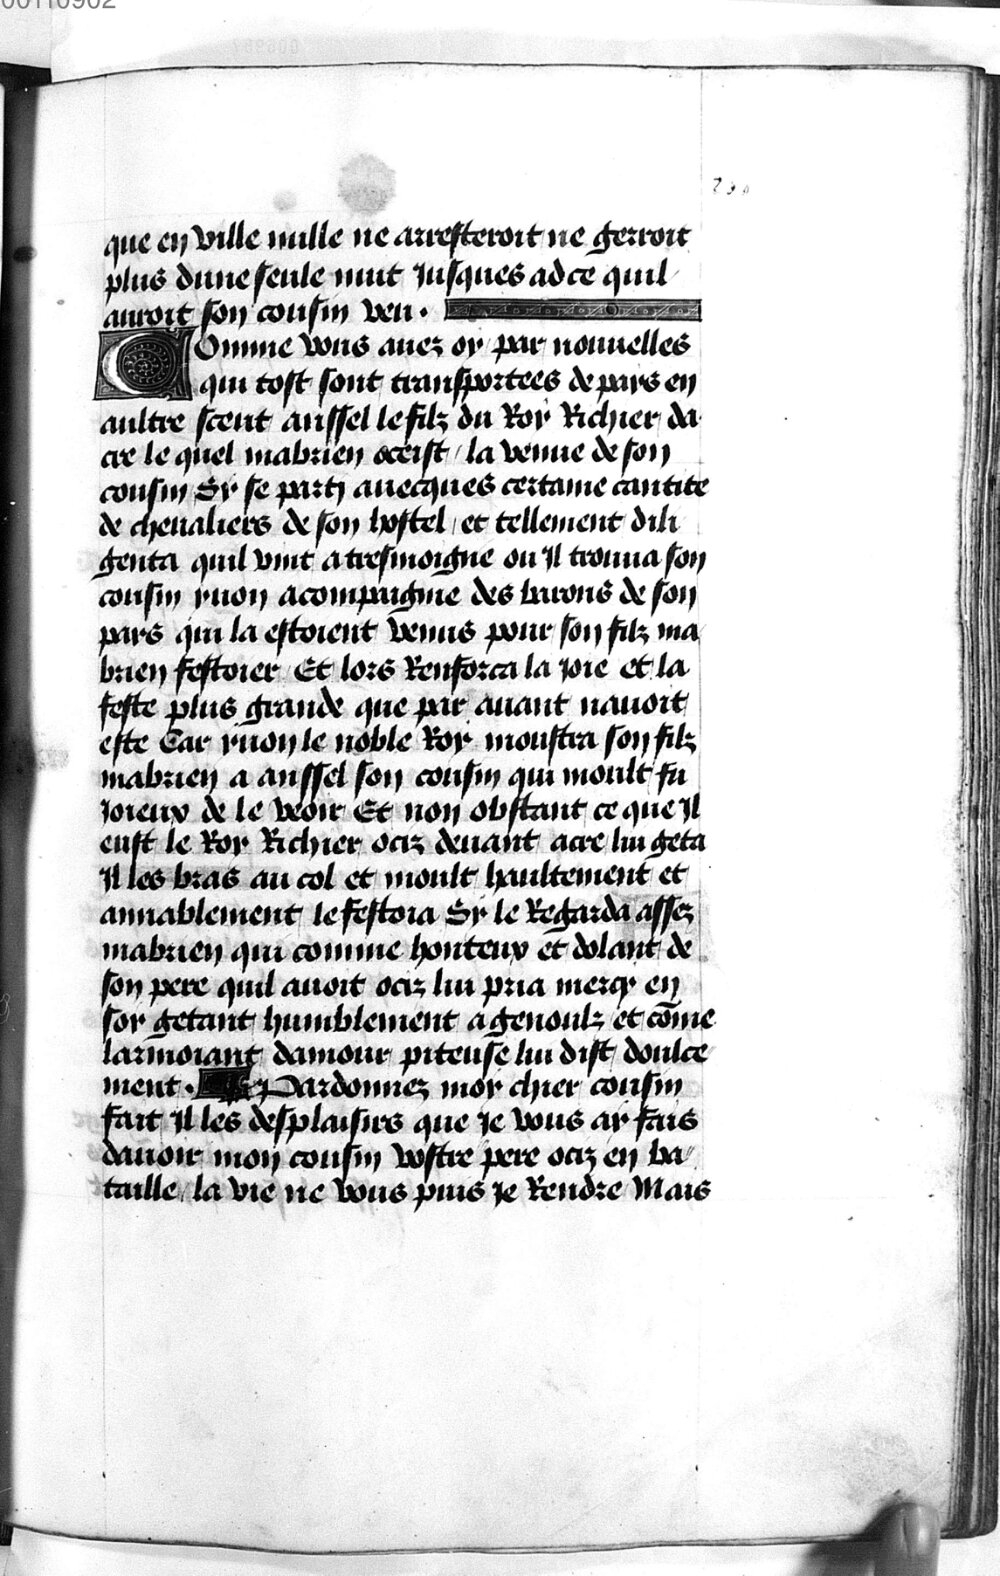 00110902
que en ville nulle ne arresteroit ne gerroit
plus dune seule nuit Jusques adce quil
auroit son cousin veu.
Comme vous auez oy par nouuelles
qui tost sont transportees de pays en
aultre sceut anssel le filz du Roy Richier da
cre le quel mabrien occist / la venue de son
cousin Sy se party auecques certaine cantite
de cheualiers de son hostel / et tellement dili
genta quil vint a tresmoigne ou Il trouua son
cousin yuon acompaignie des barons de son
pays qui la estoient venus pour son filz ma
brien festoier Et lors Renforca la Joie et la
feste plus grande que par auant nauoit
este Car yuon le noble Roy moustra son filz
mabrien a anssel son cousin qui moult fu
Joieux de le veoir Et non obstant ce que Il
eust le Roy Richier ociz deuant acre lui geta
Il les bras au col et moult haultement et
amiablement le festoia Sy le Regarda assez
mabrien qui comme honteux et dolant de
son pere quil auoit ociz lui pria mercy en
soy getant humblement a genoulz et cōme
larmoiant damour piteuse lui dist doulce
ment. Pardonnez moy chier cousin
fait Il les desplaisirs que Je vous ay fais
dauoir mon cousin vostre pere ociz en ba
taille / la vie ne vous puis Je Rendre Mais